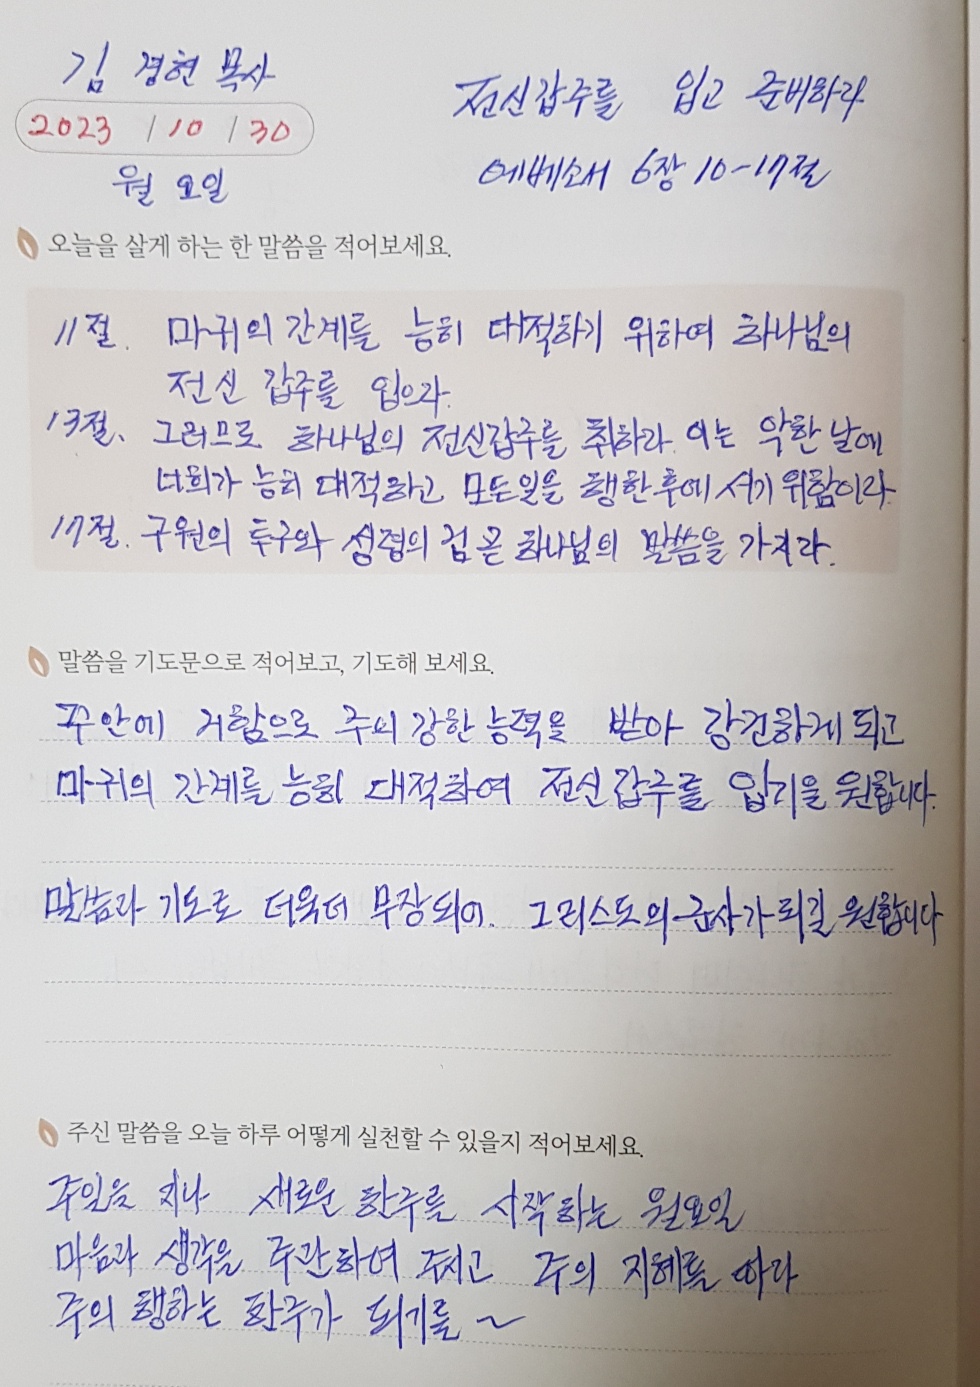 김경현 목사
전신갑주를 입고 준비하라
2023 / 10 / 30
에베소서 6장 10-17절
월요일
오늘을 살게 하는 한 말씀을 적어보세요.
11절. 마귀의 간계를 능히 대적하기 위하여 하나님의
전신 갑주를 입으라.
13절. 그러므로 하나님의 전신갑주를 취하라. 이는 악한 날에
너희가 능히 대적하고 모든일을 행한후에 서기 위함이라
17절. 구원의 투구와 성령의 검 곧 하나님의 말씀을 가지라.
말씀을 기도문으로 적어보고, 기도해 보세요.
주안에 거함으로 주의 강한 능력을 받아 강건하게 되고
마귀의 간계를 능히 대적하여 전신갑주를 입기을 원합니다.
말씀과 기도로 더욱더 무장되어. 그리스도의 군사가 되길 원합니다
주신 말씀을 오늘 하루 어떻게 실천할 수 있을지 적어보세요.
주일을 지나 새로운 한주를 시작하는 월요일
마음과 생각을 주관하여 주시고 주의 지혜를 따라
주의 행하는 한주가 되기를 ~